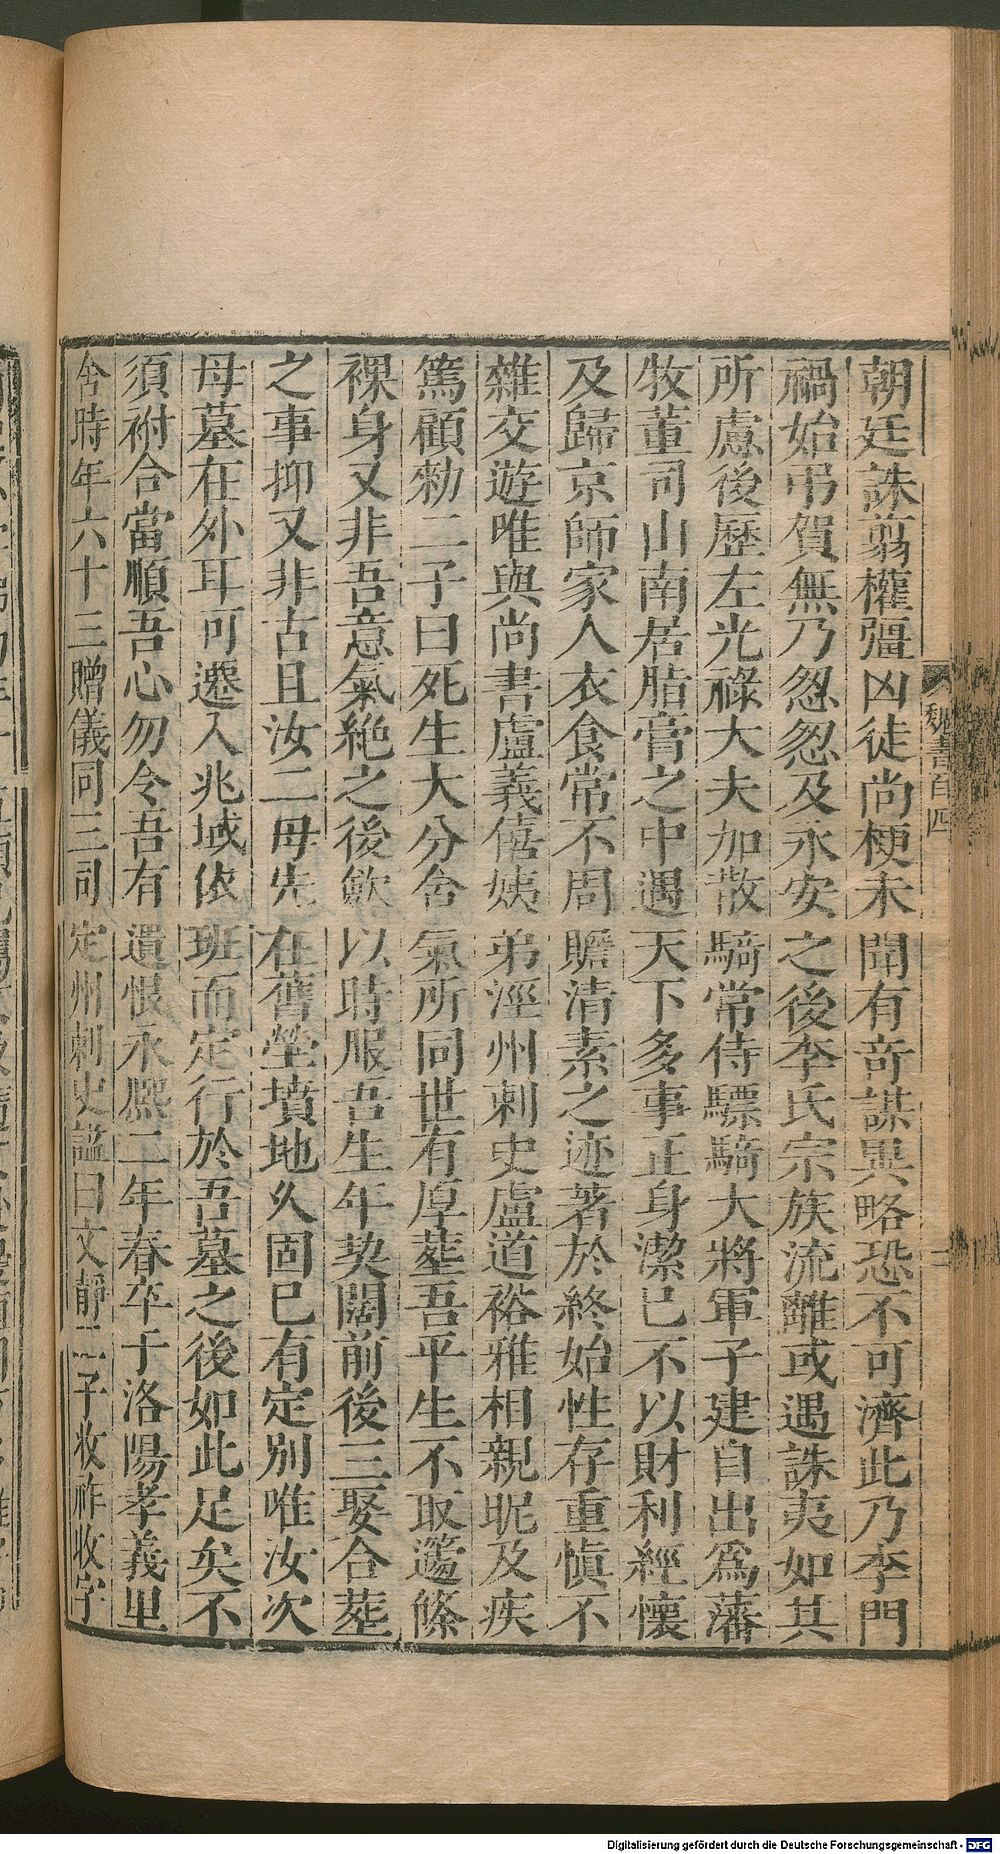 朝廷誅翦權彊凶徒尚梗未聞有奇謀異略恐不可濟此乃李門
禍始弔賀無乃怱怱及永安之後李氏宗族流離或遇誅夷如其
所慮後歷左光祿大夫加散騎常侍驃騎大將軍子建自出爲藩
牧董司山南居脂膏之中遇天下多事正身潔己不以財利經懷
及歸京師家人衣食常不周贍清素之迹著於終始性存重愼不
雜交遊唯與尚書盧義僖姨弟涇州刺史盧道裕雅相親昵及疾
篤顧勑二子曰死生大分含氣所同世有厚葬吾平生不取蘧篨
裸身又非吾意氣絶之後歛以時服吾生年契闊前後三娶合葬
之事抑又非古且汝二母先在舊塋墳地久固已有定别唯汝次
母墓在外耳可遷入兆域依班而定行於吾墓之後如此足矣不
須祔合當順吾心勿令吾有遺恨永熙二年春卒于洛陽孝義里
舍時年六十三贈儀同三司定州刺史謚曰文靜二子收祚收字
魏書百四
Digitalisierung gefördert durch die Deutsche Forschungsgemeinschaft - DFG